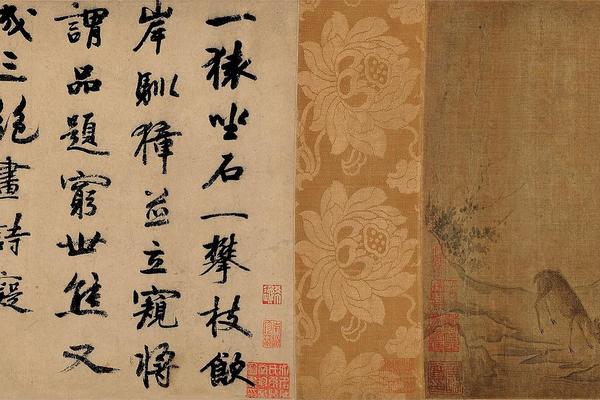 一猿坐石一攀枝飲
岸馴獐並立窺將
謂品題窮世態又
成三絕畫詩